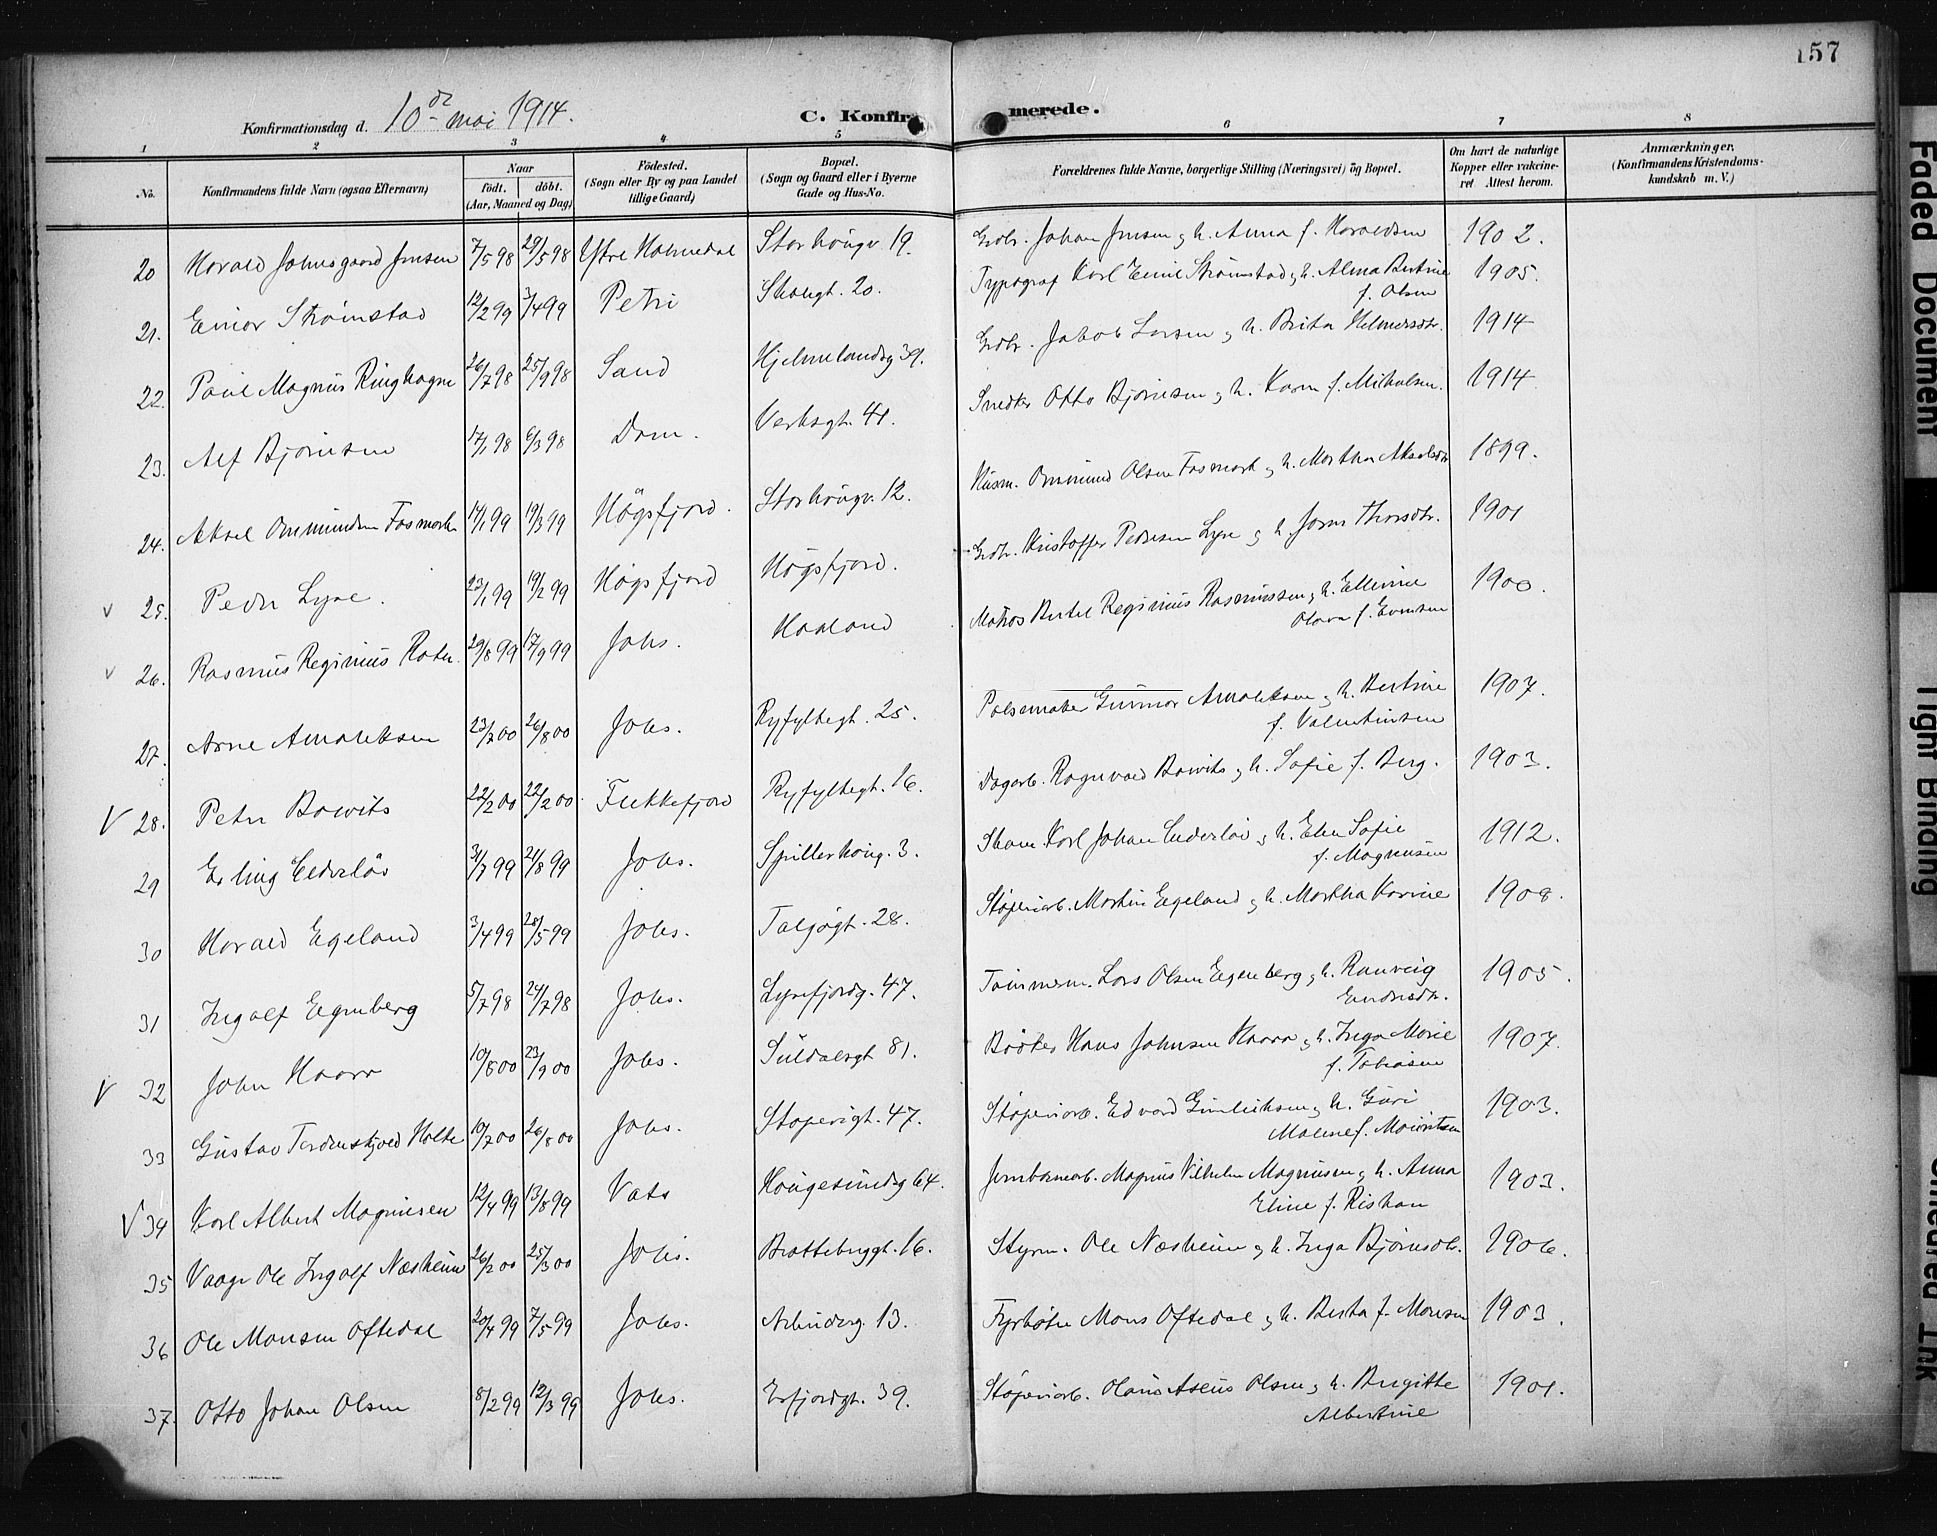 157
Konfirmationsdag d. 10de mai 1914.
C. Konfirmerede.
1 2 3 4 5 6 7 8
No. Konfirmandens fulde Navn (ogsaa Efternavn) Naar født. døbt. (Aar, Maaned og Dag) Fødested. (Sogn eller By og paa Landet tillige Gaard) Bopæl. (Sogn og Gaard eller i Byerne Gade og Hus-No. Forældrenes fulde Navne, borgerlige Stilling (Næringsvei) og Bopæl. Om havt de naturlige Kopper eller vakcineret Attest herom. Anmærkninger. (Konfirmandens Kristendomskundskab m. V.)
20 Harald Johnsgaard Jensen 7/5 98 29/5 98 Ytre Holmedal Storhaugv. 19. Grdbr. Johan Jensen og h. Anna f. Haraldsen 1902.
21. Einar Strømstad 12/2 99 3/4 99 Petri Skolegt. 20. Typograf Karl Emil Strømstad og h. Alma Bertine
f. Olsen 1905.
22. Paul Magnus Ringhagne 26/7 98 25/9 98 Sand Hjelmelandsg 39. Grdbr. Jakob Larsen og h. Brita Helmersdtr. 1914
23. Alf Bjørnsen 17/1 98 6/3 98 Dom. Verksgt. 41. Snedker Otto Bjørnsen og h. Karn f. Mikalsen. 1914
24. Aksel Ommundsen Fosmark 14/1 99 19/3 99 Høgsfjord. Storhaugv. 12. Husm. Ommund Olsen Fosmark og h. Martha Akselsdtr 1899.
v 25. Peder Lyse. 23/1 99 19/2 99 Høgsfjord Høgsfjord. Grdbr. Kristoffer Pedersen Lyse og h. Thorsdtr. 1901
v 26. Rasmus Reginius 29/8 99 17/9 99 Johs. Haaland Matros Bertel Reginius Rasmussen og h. Elline
Olava f. Evensen 1900.
27. Arne Arnoldsen 23/7 00 26/8 00 Johs. Ryfylkegt. 25. Pølsemaker Gunnar Arnoldsen og h. Bertine
f. Valentinsen 1907.
V 28. Peter Bowits 22/2 00 22/2 00 Flekkefjord Ryfylkegt. 16. Dagarb. Ragnvald Bowits og h. Sofie f. Berg. 1903.
29 Erling Cederløv 31/7 99 21/8 99 Johs. Spilderhaug. 3. Skom. Karl Johan Cederløv og h. Elen Sofie
f. Magnusen 1912.
30 Harald Egeland 3/4 99 28/5 99 Johs. Talgøgt. 28. Støperiarb. Martin Egeland og h. Martha Karine 1908.
31 Ingolf Egenberg 5/7 98 24/7 98 Johs. Lysefjordg. 47. Tømmerm. Lars Olsen Egenberg og h. Ranveig
Endresdtr. 1905.
V 32 John Haarr 10/8 00 23/9 00 Johs. Suldalsgt 81. Bødker Hans Johnsen Haarr og h. Inga Marie
f. Tobiasen 1907.
33 Gustav Tordenskjold Holte 10/7 00 26/8 00 Johs. Støperigt. 47. Støperiarb. Edvard Gunleiksen og h. Guri
Malene f. Mauritsen 1903.
V 34 Karl Albert Magnusen 12/4 99 13/8 99 Vats Haugesundsg 64. Jernbanearb. Magnus Vilhelm Magnusen og h. Anna
Eline f. Riskan 1903.
35 Vaage Ole Ingolf Næsheim 26/2 00 25/3 00 Johs. Brattebrygt. 16. Styrm. Ole Næsheim og h. Inga Bjørnsdtr. 1906.
36 Ole Monsen Oftedal 20/4 99 7/5 99 Johs. Arbeiderg. 13. Fyrbøter Mons Oftedal og h. Berta f. Monsen 1903.
37. Otto Johan Olsen 8/2 99 12/3 99 Johs. Erfjordgt. 39. Støperiarb. Olaus Aseus Olsen og h. Birgitte
Albertine 1901.
Faded Document
Tight Binding